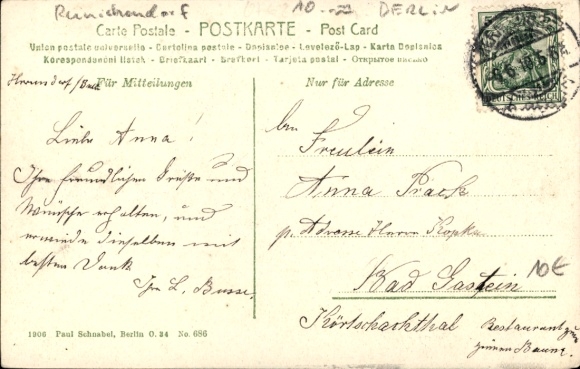 Reinickendorf 10.- DERLIN
Carte Postale - POSTKARTE - Post Card
Union postale universelle - Cartolina postale - Dopisnice - Levelező-Lap - Karta Dopisnica
Korespondenční lístek - Briefkaart - Brefkort - Tarjeta postal - Открытое письмо
Für Mitteilungen
Nur für Adresse
DEUTSCHES REICH
Liebe Anna!
Ihre freundlichen Grüße und
Wünsche erhalten, und
erwiedre dieselben mit
besten Dank
Ihr L. Busse.
Freulein
Anna Prack
p. Adresse Herrn Kopka
Bad Gastein
10€
Kötschachthal Restaurant zum
grünen Baum.
1906 Paul Schnabel, Berlin O. 34 No. 686